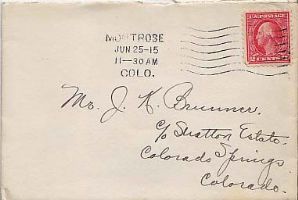 MONTROSE
JUN 25-15
11-30AM
COLO.
U.S. POSTAGE
2 CENTS 2
Mr. J. K. Brunner.
c/o Stratton Estate.
Colorado Springs.
Colorado.